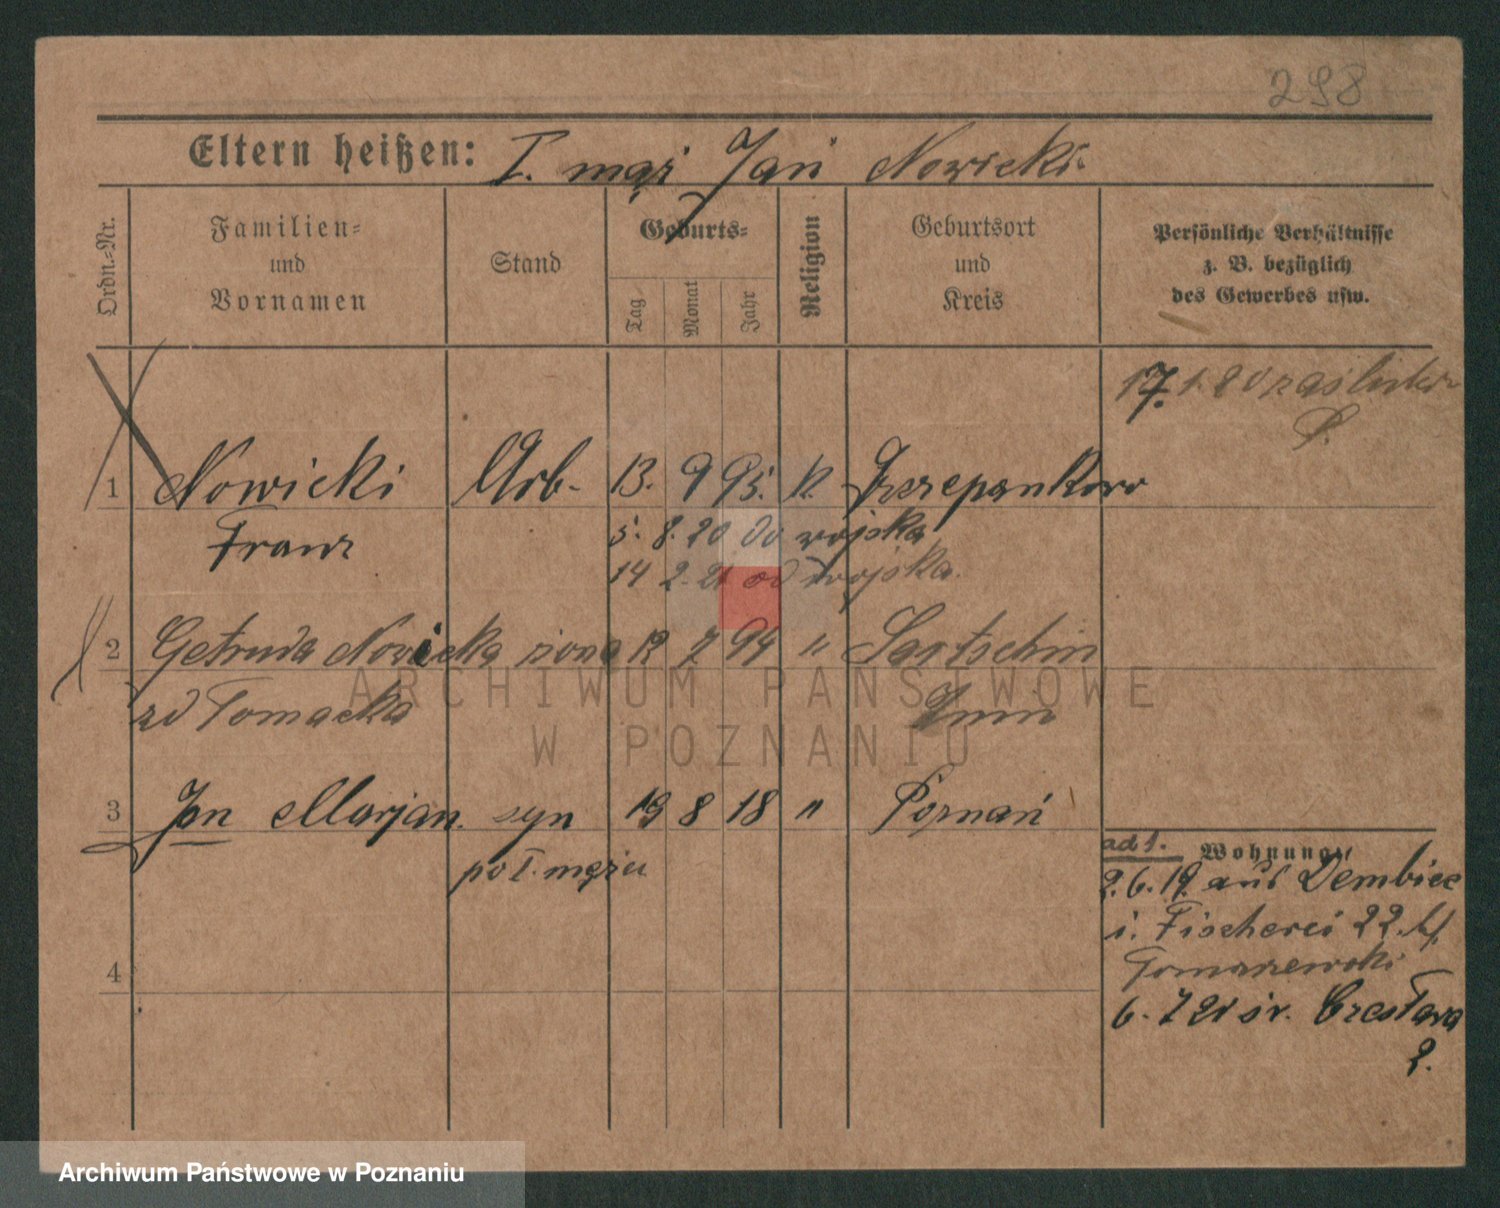 298
Eltern heißen: I. mąż Jan Nowicki
Ordn.-Nr.
Familien-
und
Vornamen
Stand
Geburts-
Tag
Monat
Jahr
Religion
Geburtsort
und
Kreis
Persönliche Verhältnisse
z. B. bezüglich
des Gewerbes usw.
17. 1. 20
1 Nowicki Arb- 13. 9 95. k.
Franz
5. 8. 20 do wojska
14 2. 21 od wojska.
2 Getruda Nowicka żona 19 2 94 " Sartschin
zd Tomacka Znin
3 Jan Marjan. syn 19 8 18 " Poznań
po I. mężu
4
ad 1. Wohnung
2. 6. 19. aus Dembiec
i. Fischerei 22. b/
Tomaszewski
6. 7 21 św. Czesława
2.
ARCHIWUM PAŃSTWOWE
W POZNANIU
Archiwum Państwowe w Poznaniu